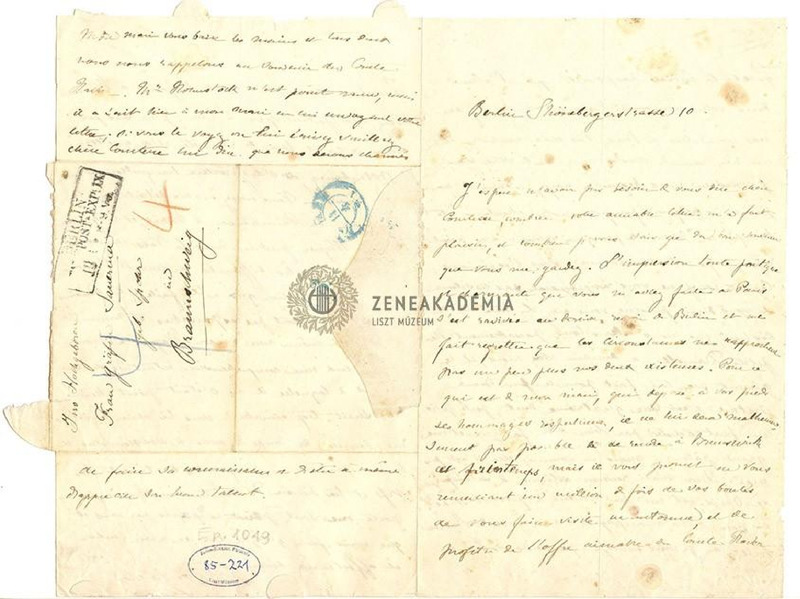 Berlin Shönebergerstrasse 10.
J'espère n'avoir pas besoin de vous dire chère
Comtesse, combien votre aimable lettre m'a fait
plaisir, et combien je vous sais gré du bon souvenir
que vous me gardez. L'impression toute
que vous m'avez faite à Paris
s'est ravivée au dernier de Berlin et me
fait regretter que les circonstances ne rapprochent
pas un peu plus nos deux existences. Pour ce
qui est de mon mari, qui dépose à vos pieds
ses hommages respectueux, il ne lui sera malheureu
sement pas possible de se rendre à Brunswick
printemps, mais il vous promet en vous
remerciant un million de fois de vos bontés
de vous faire visite en automne, et de
profiter de l'offre aimable du Comte
mari vous baise les mains et tous deux
nous nous rappelons au souvenir du Comte
n'est point venu, mais
il a écrit hier à mon mari en lui envoyant votre
lettre, si vous le voyez ou lui écrivez veuillez
chère Comtesse lui dire que nous serons charmés
de faire sa connaissance et d'être à même
d'apprécier son beau talent.
BERLIN
POST-EXP. IX
4
Ihro Hochgeboren
Frau Gräfin Sauerma
geb. Spohr
in
Braunschweig
ZENEAKADÉMIA
LISZT MÚZEUM
Ep. 1019
85-221